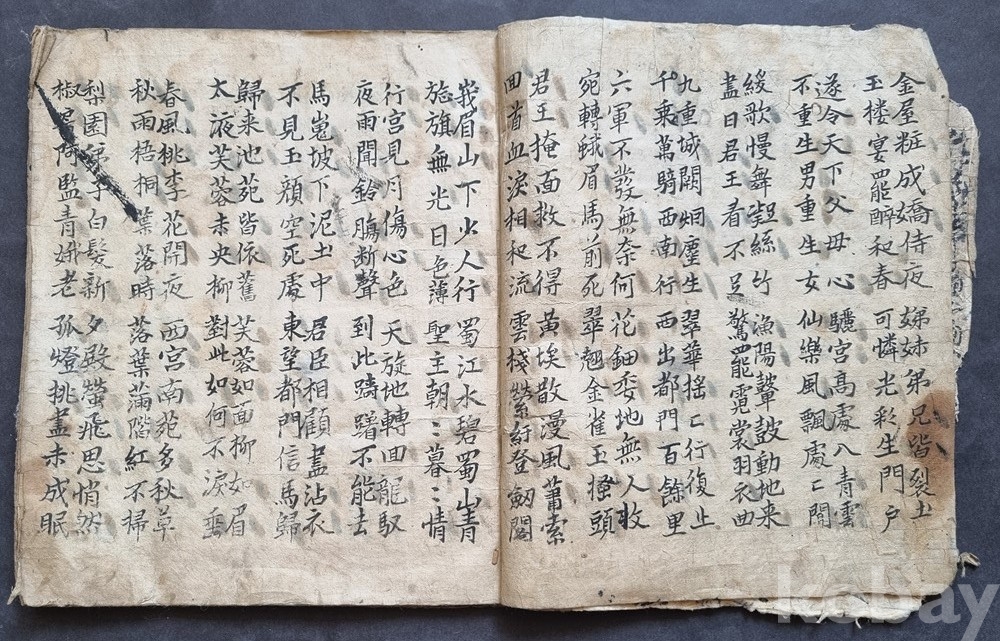 金屋粧成嬌侍夜 姊妹弟兄皆裂土
玉楼宴罷醉和春 可憐光彩生門户
遂令天下父母心 驪宮高處入青雲
不重生男重生女 仙樂風飄處〻聞
緩歌慢舞凝絲竹 漁陽鼙鼓動地来
盡日君王看不足 驚罷霓裳羽衣曲
九重城闕烟塵生 翠華搖〻行復止
千乗萬騎西南行 西出都門百餘里
六軍不發無奈何 花鈿委地無人收
宛轉蛾眉馬前死 翠翹金雀玉搔頭
君王掩面救不得 黄埃散漫風蕭索
回首血淚相和流 雲棧縈紆登劒閣
峩眉山下少人行 蜀江水碧蜀山青
旌旗無光日色薄 聖主朝〻暮〻情
行宮見月傷心色 天旋地轉回龍馭
夜雨聞鈴膓断聲 到此躊躇不能去
馬嵬坡下泥土中 君臣相顧盡沾衣
不見玉顔空死處 東望都門信馬歸
歸来池苑皆依舊 芙蓉如面柳如眉
太液芙蓉未央柳 對此如何不淚垂
春風桃李花開夜 西宮南苑多秋草
秋雨梧桐葉落時 落葉滿階紅不掃
梨園弟子白髮新 夕殿螢飛思悄然
椒房阿監青娥老 孤燈挑盡未成眠
kobay